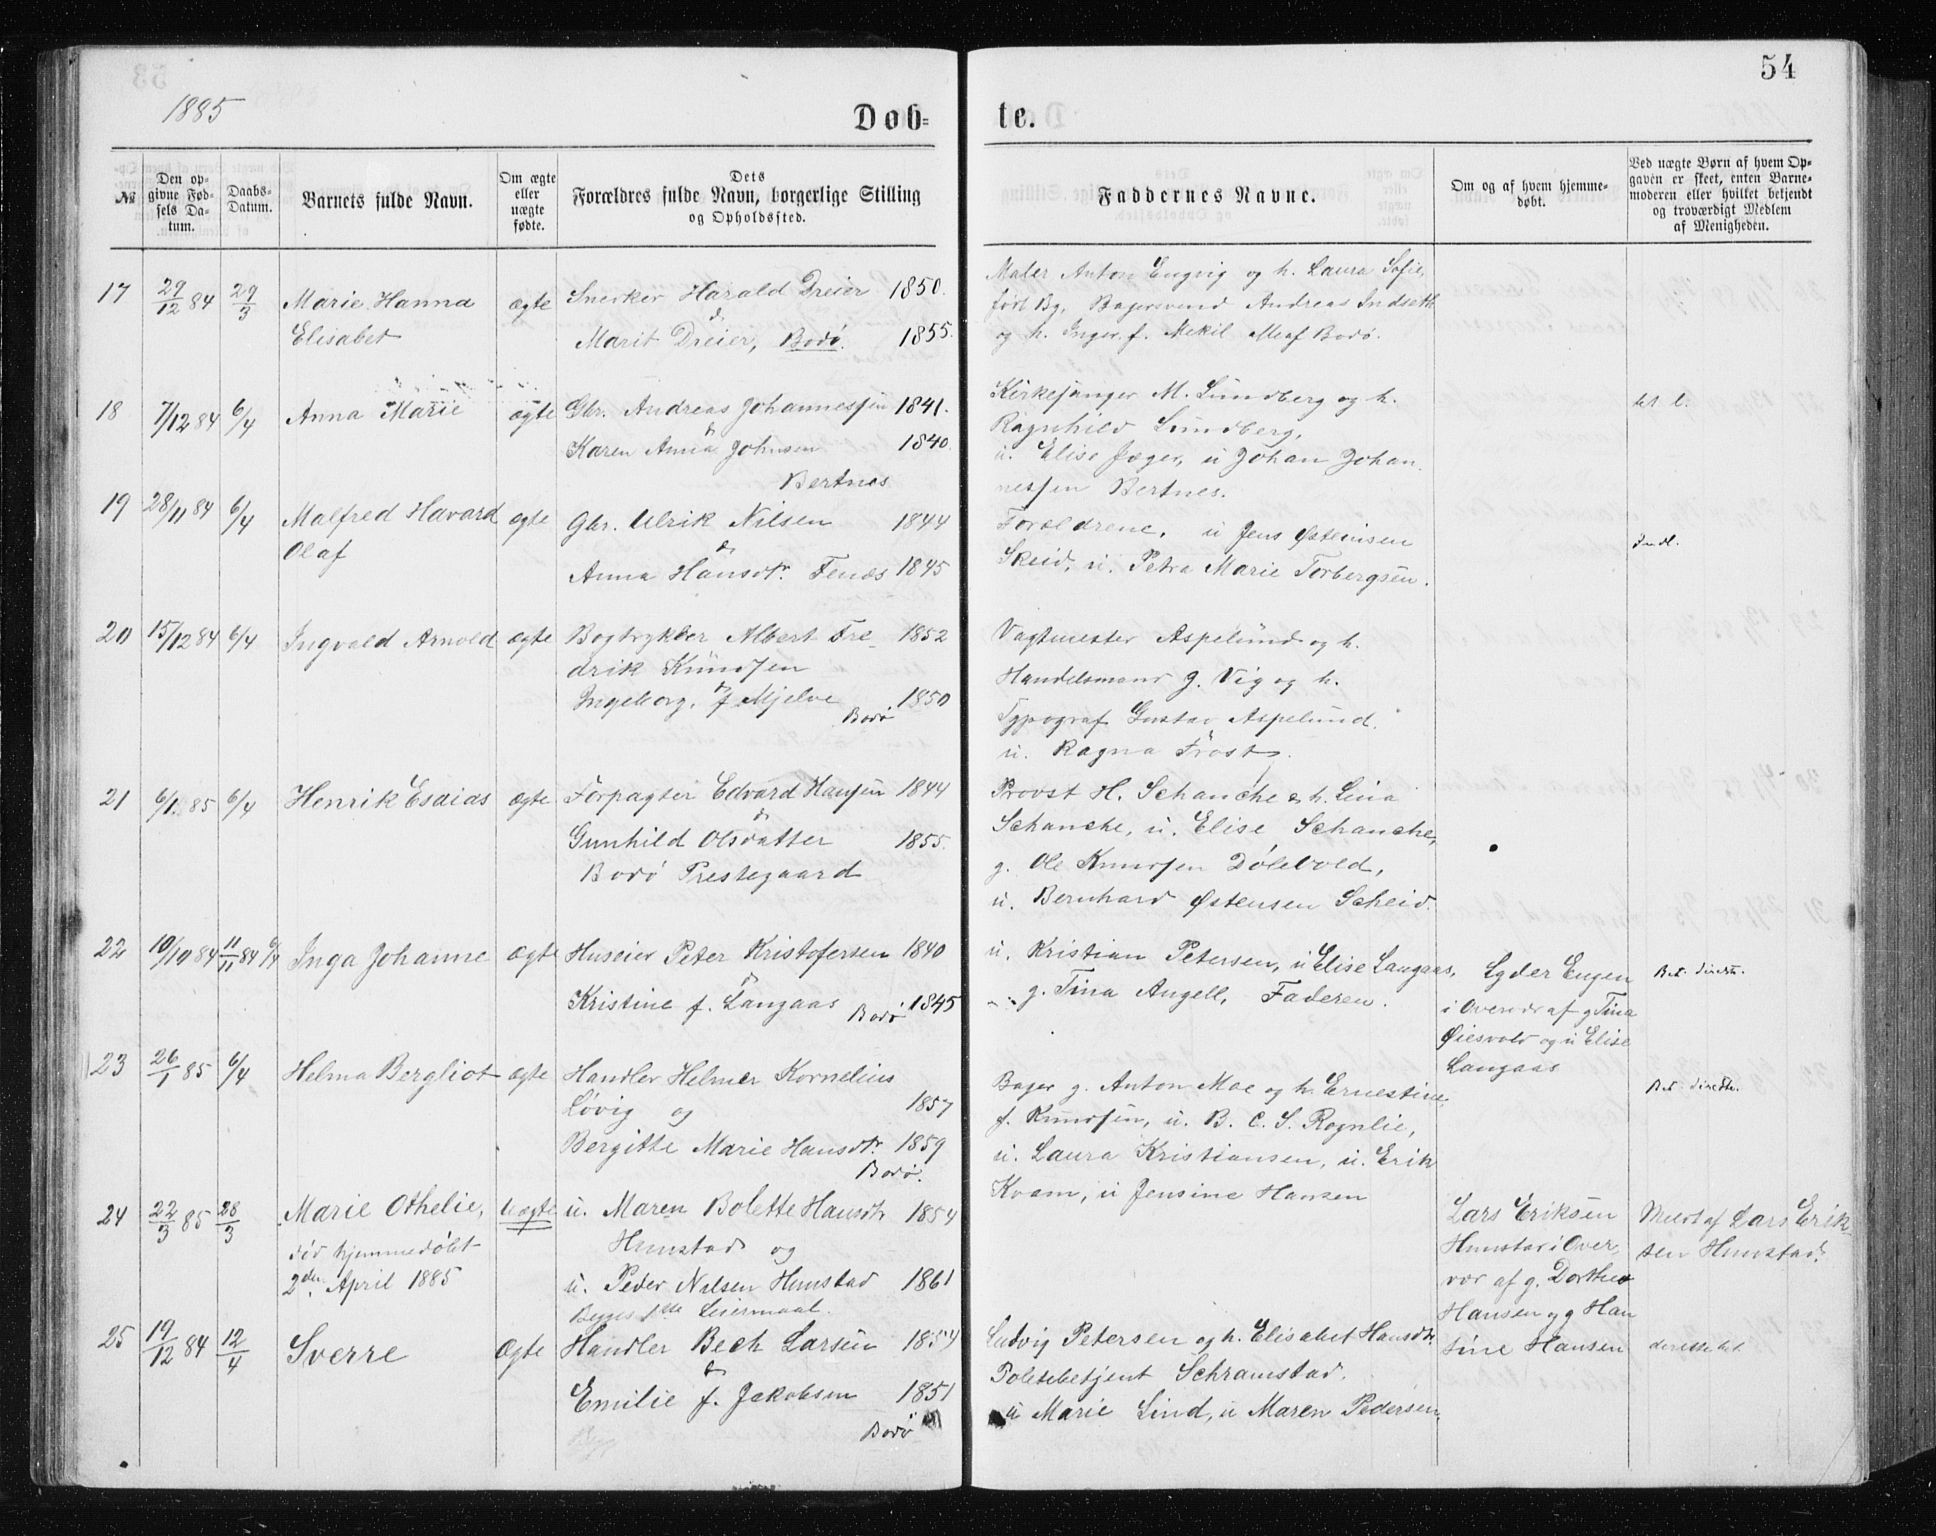 54
1885
Døb-
te.
№
Den op-
givne Fød-
sels Da-
tum.
Daabs-
Datum.
Barnets fulde Navn.
Om ægte
eller
uægte
fødte.
Dets
Forældres fulde Navn, borgerlige Stilling
og Opholdssted.
Faddernes Navne.
Om og af hvem hjemme-
døbt.
Ved uægte Børn af hvem Op-
gaven er skeet, enten Barne-
moderen eller hvilket bekjendt
og troværdigt Medlem
af Menigheden.
17 29/12 84 29/3 Marie Hanna ægte Snerker Harald Dreier 1850.
Elisabet
& Marit Dreier, Bodø. 1855.
Maler Anton Engvig og h. Laura Sofie,
Bagersvend Andreas Indseth
og h. Inger f. Mekil Bodø.
18 7/12 84 6/4 Anna Marie ægte Gbr. Andreas Johannesjen 1841.
& Karen Anna Johnsen 1840.
Bertnes
Kirkesanger M. Lundberg og h.
Ragnhild Lundberg,
u. Elise Jæger, u Johan Johan-
nesjen Bertnes.
19 28/11 84 6/4 Malfred Havard ægte Gbr. Ulrik Nilsen 1844
Olaf
& Anna Hansdtr. Fenes 1845
Forældrene, u Jens Østeinsen
Skeid, u. Petra Marie Torbergsen.
Indl.
20 15/12 84 6/4 Ingvald Arnold ægte Bogtrykker Albert Fre- 1852
drik Knudsen
& Ingeborg, f Mjelve 1850
Bodø
Vagtmester Aspelund og h.
Handelsmand G. Vig og h.
Typograf Gustav Aspelund.
u. Ragna Frost.
21 6/1 85 6/4 Henrik Esaias ægte Forpagter Edvard Hansen 1844
& Gunhild Olsdatter 1855.
Bodø Prestegaard
Provst H. Schanche & h. Lina
Schanche, u. Elise Schanche,
g. Ole Knudsen Dølebold,
u. Bernhard Østensen Scheid.
22 10/10 84 11/11 84 6/4 Inga Johanne ægte Huseier Peter Kristofersen 1840
& Kristine f. Langaas Bodø 1845
u. Kristian Petersen, u Elise Langaas,
g. Tina Angell, Faderen.
Lyder Eugen
i Overvdr af g Tina
Øiesvold og u Elise
Langaas
Bet. direkte.
23 26/1 85 6/4 Helma Bergliot ægte Handler Helmer Kornelius
Løvig og 1857
Bergitte Marie Hansdtr 1859
Bodø.
Bager g. Anton Moe og h. Ernestine,
f. Knudsen, u. B. C. S. Rognlie,
u. Laura Kristiansen, u. Erik
Kvam, u Jensine Hansen
Bet. direkte.
24 22/3 85 28/3 Marie Othelie, Uægte u. Maren Bolette Hansdtr 1854
død hjemmedøbt
2den April 1885
Hunstad og
u. Peder Nilsen Hunstad 1861
Begges 1ste Leiermaal.
Lars Eriksen
Hunstad i Over-
vær af g. Dorthea
Hansen og g Han
sine Hansen
Meldt af Lars Erik-
sen Hunstad.
25 19/12 84 12/4 Sverre Ægte Handler Bech Larsen 1854
& Emilie f. Jakobsen 1851
Bodø
Ludvig Petersen og h. Elisabet Hansdtr.
Politibetjent Schramstad.
u Marie Lind, u Maren Pedersen.